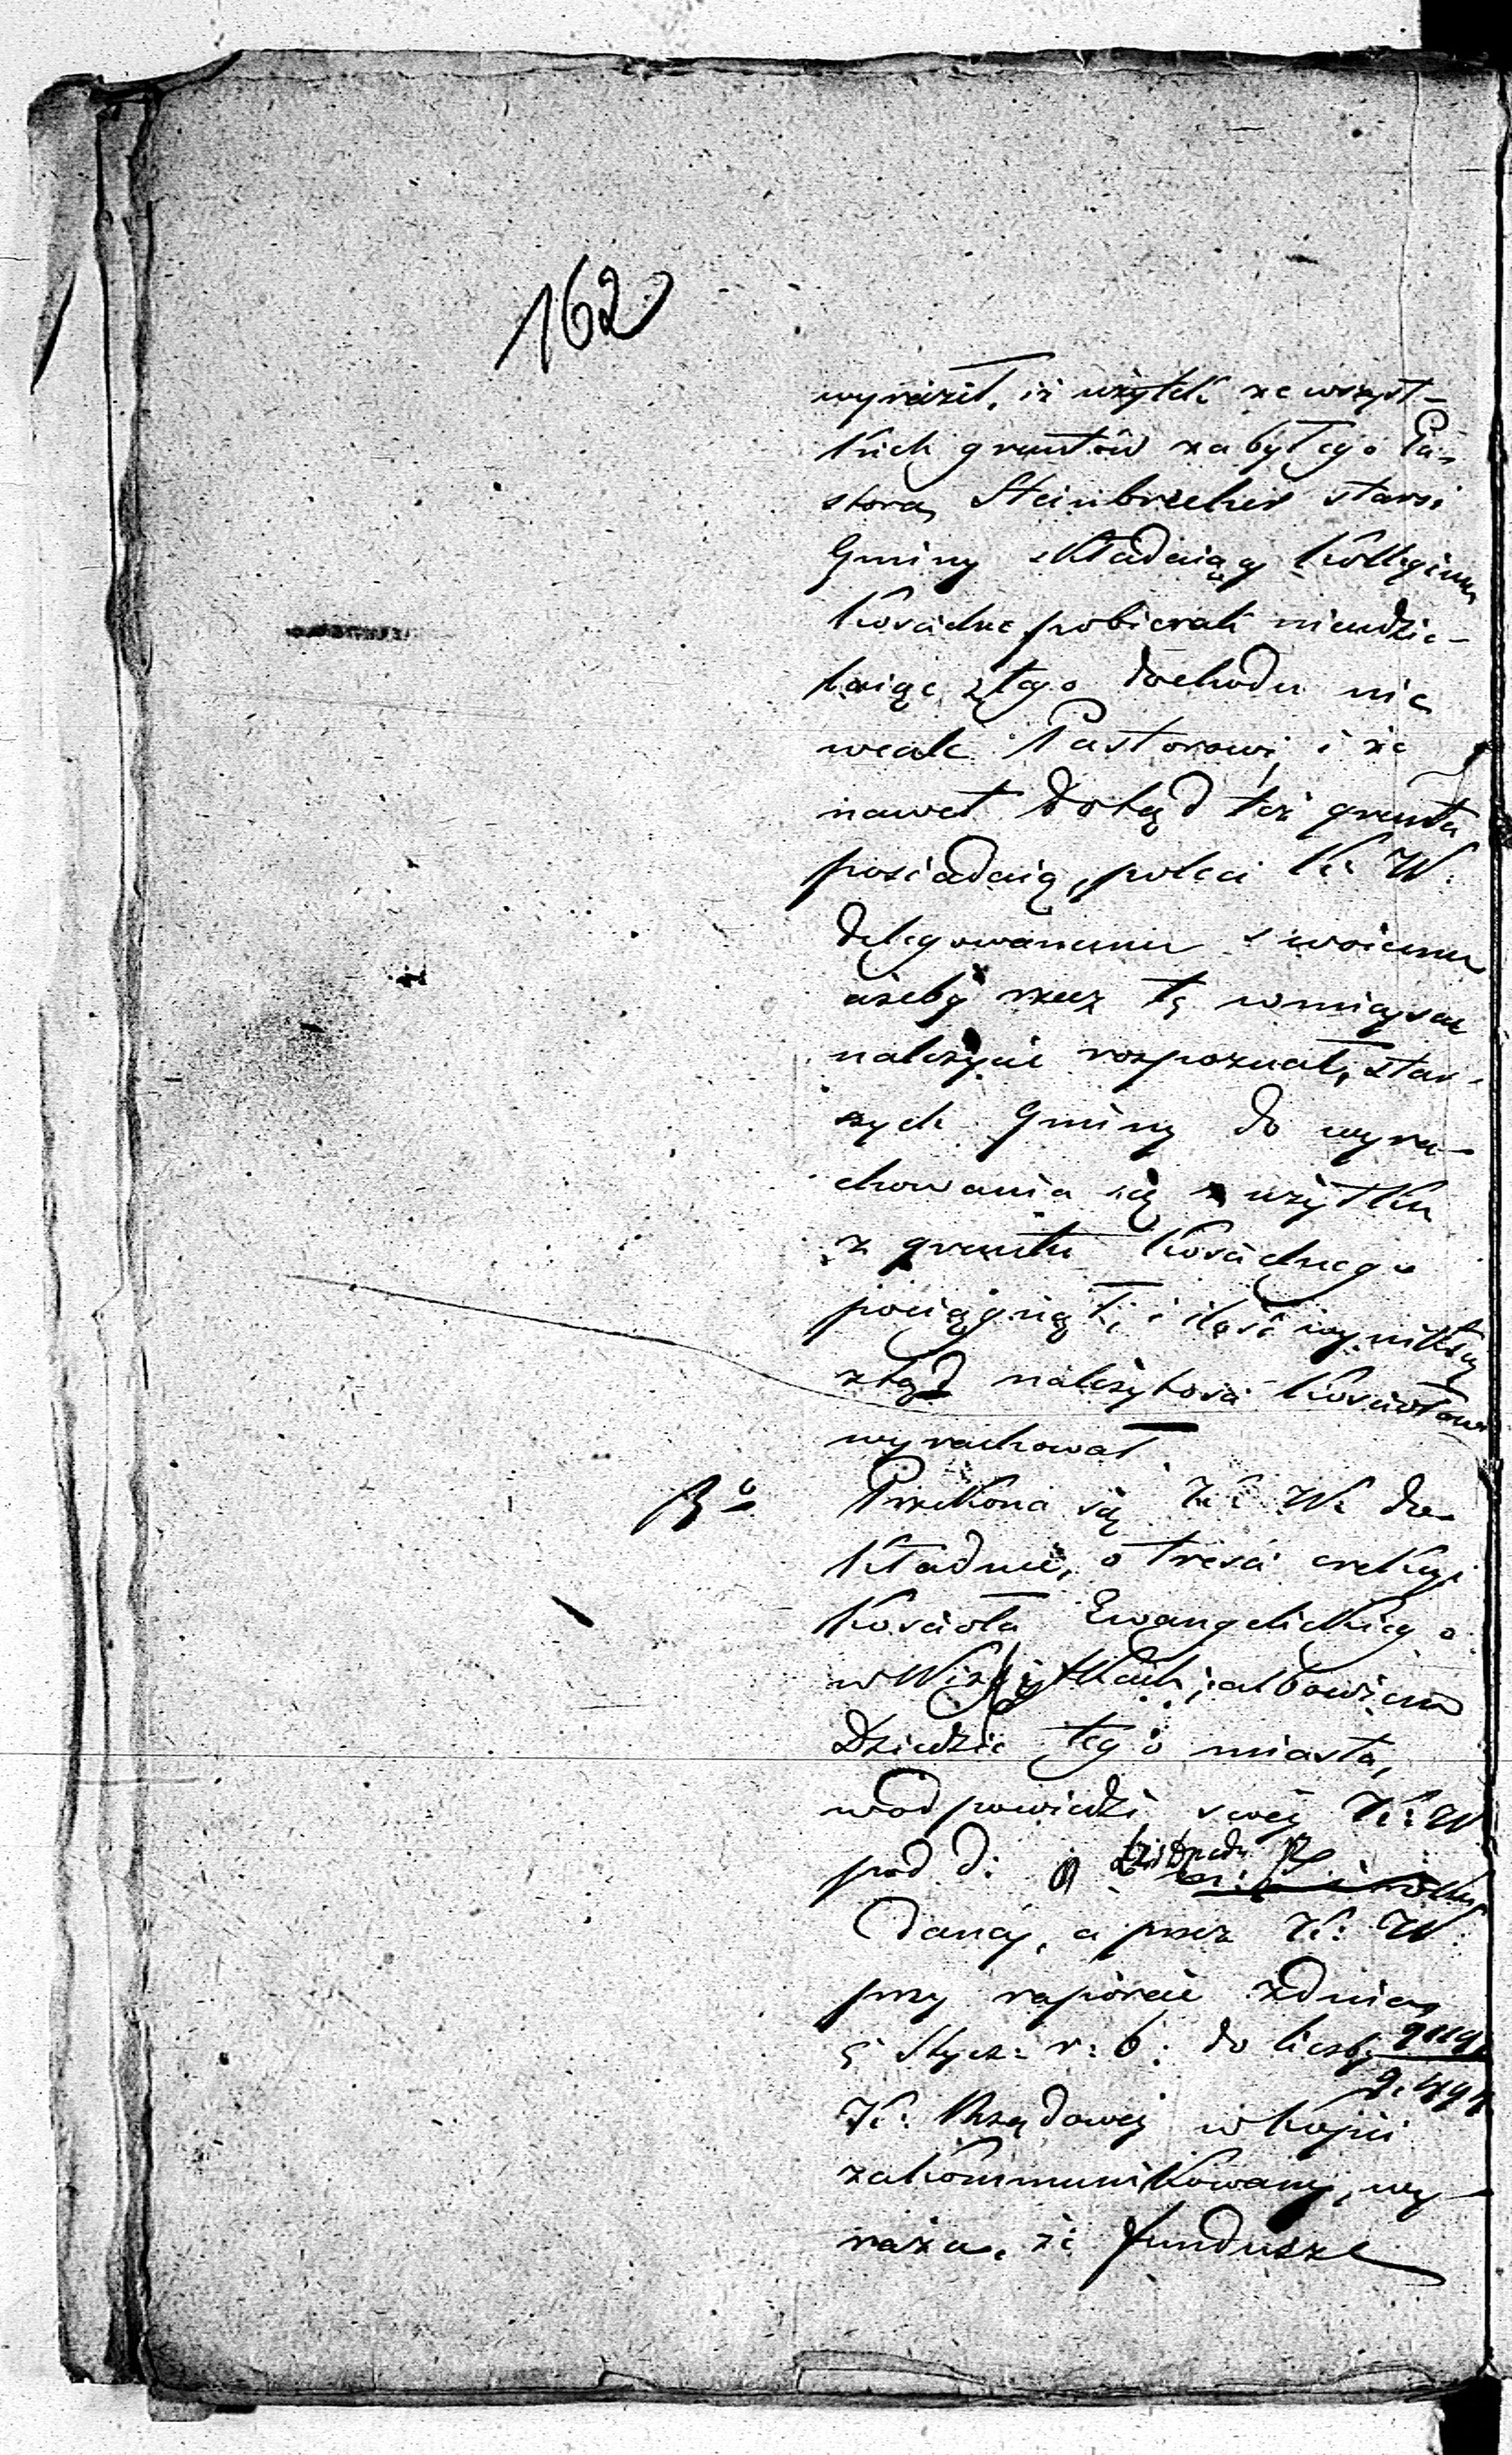 162
wyraził, iż użytek ze wszyst-
kich gruntów za byłego Pa-
stora Steinbrecher starsi
Gminy składaiący Kollegium
Kościelne pobierali nieudzie-
laiąc z tego dochodu nic
wcale Pastorowi, i że
nawet dotąd też grunta
posiadaią, poleci K: W:
delegowanemu swoiemu
ażeby rzecz tę wmieyscu
należycie rozpoznał, star-
szych Gminy do wyra-
chowania się z użytku
z gruntu Kościelnego
pociągnął, i ilość wynikłey
ztąd należytości Kościołowi
wyrachował
3o Przekona się K: W: do-
kładnie, o treści erekcyi
Kościoła Ewangelickiego
w Wiskitkach; albowiem
Dziedzic tego miasta,
wodpowiedzi swey K: W
pod d: 9 Listopada
daney, a przez K: W:
przy raporcie zdnia
5 Stycz: r: b: do liczby
K: Rządowey w kopii
zakommunikowaney, wy-
raża, że fundusze